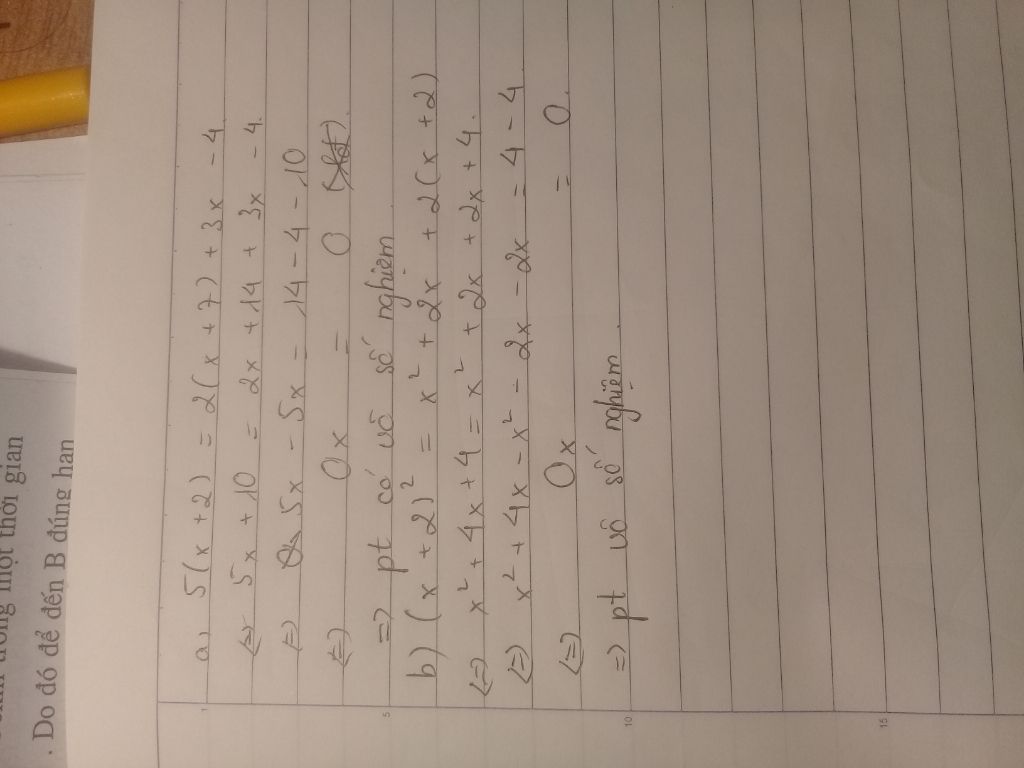 trong một thời gian
. Do đó để đến B đúng hạn
a) 5(x + 2) = 2(x + 7) + 3x - 4
<=> 5x + 10 = 2x + 14 + 3x - 4.
<=> 5x - 5x = 14 - 4 - 10
<=> 0x = 0
=> pt có vô số nghiệm
b) (x + 2)² = x² + 2x + 2(x + 2)
<=> x² + 4x + 4 = x² + 2x + 2x + 4.
<=> x² + 4x - x² - 2x - 2x = 4 - 4
<=> 0x = 0.
=> pt vô số nghiệm.
1
5
10
15